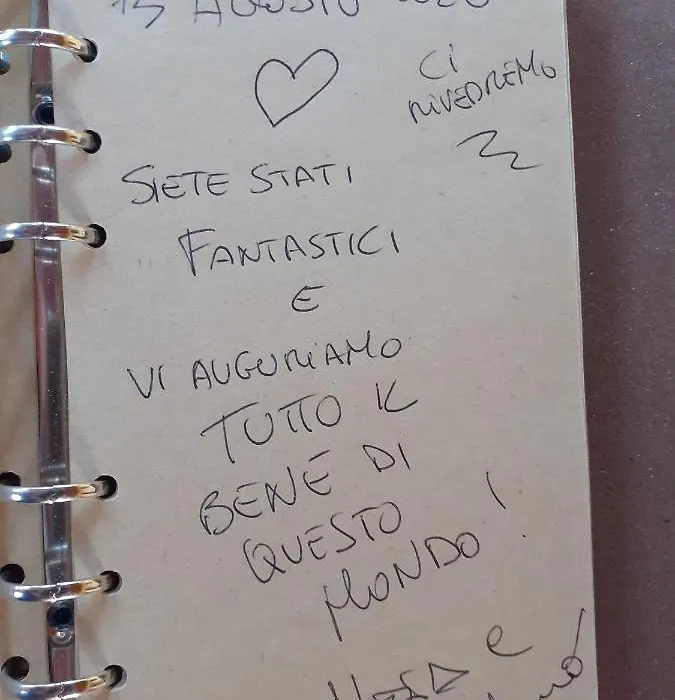 15 AGOSTO 2020
CI
RIVEDREMO
SIETE STATI
FANTASTICI
E
VI AUGURIAMO
TUTTO IL
BENE DI
QUESTO
MONDO!
e